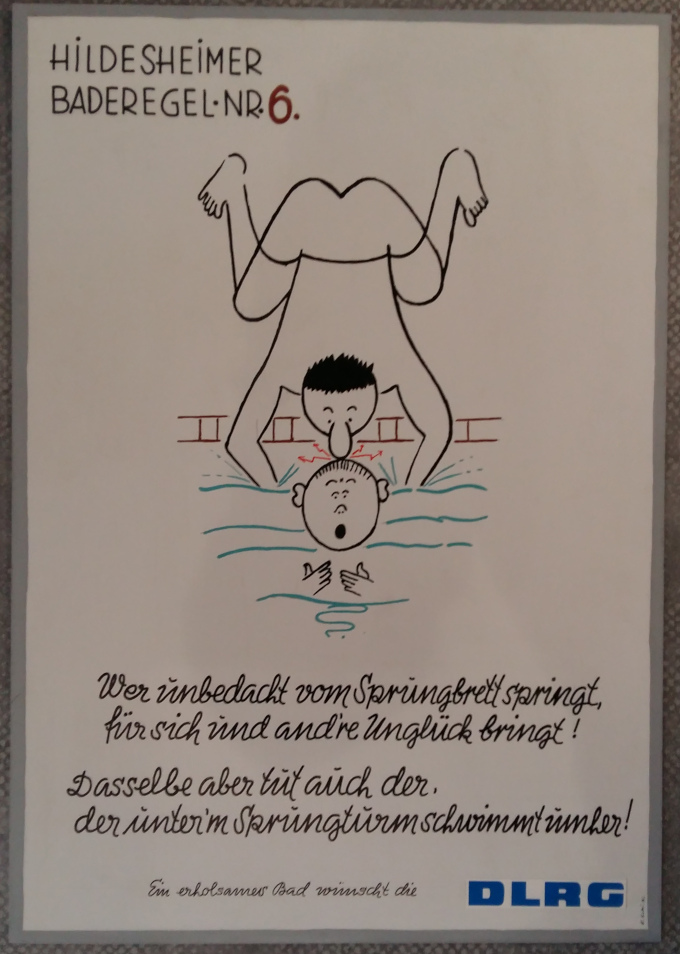 HILDESHEIMER
BADEREGEL·NR·6.
Wer unbedacht vom Sprungbrett springt,
für sich und and're Unglück bringt!
Dasselbe aber tut auch der,
der unter'm Sprungturm schwimmt umher!
Ein erholsames Bad wünscht die
DLRG